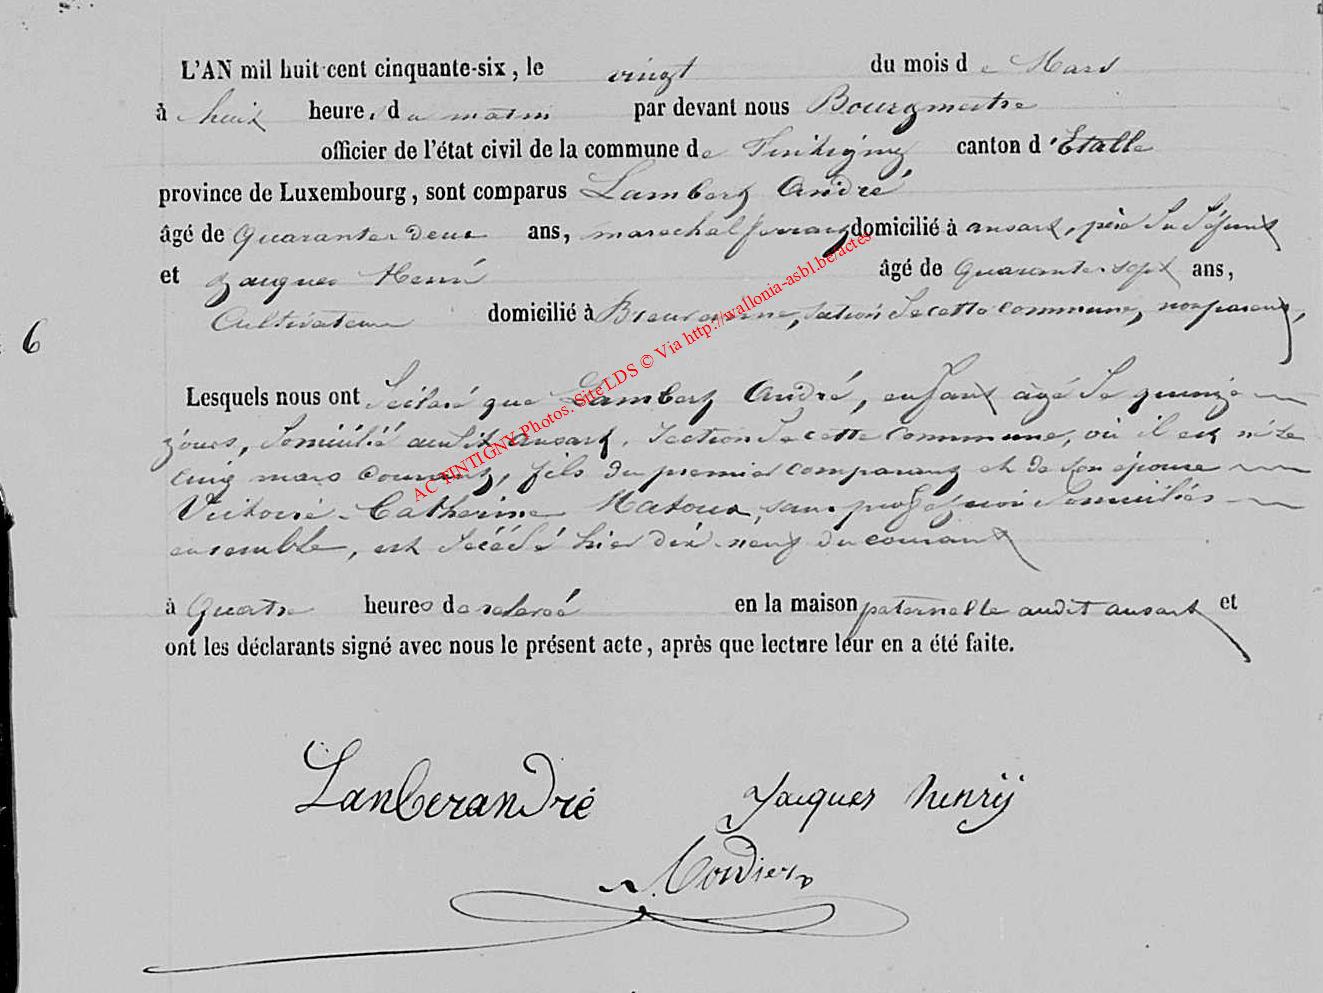 L'AN mil huit cent cinquante-six, le vingt du mois de Mars
à huit heure. du matin par devant nous Bourgmestre
officier de l'état civil de la commune de Tintigny canton d'Etalle
province de Luxembourg, sont comparus Lambert André
âgé de Quarante deux ans, marechal ferrant domicilié à ansart, père du défunt
et Jacques Henri âgé de Quarante sept ans,
Cultivateur domicilié à Breuvanne, section de cette commune, non parent,
6
Lesquels nous ont déclaré que Lambert André, enfant âgé de quinze
jours, domicilié audit ansart, section de cette commune, où il est né le
cinq mars courant, fils du premier comparant et de son épouse
Victoire Catherine sans domiciliés
ensemble, est décédé hier dix neuf du courant
à Quatre heures de relevée en la maison paternelle audit ansart et
ont les déclarants signé avec nous le présent acte, après que lecture leur en a été faite.
Lanberandré Jacques henrÿ
AC TINTIGNY Photos. Site LDS © Via http://wallonia-asbl.be/actes